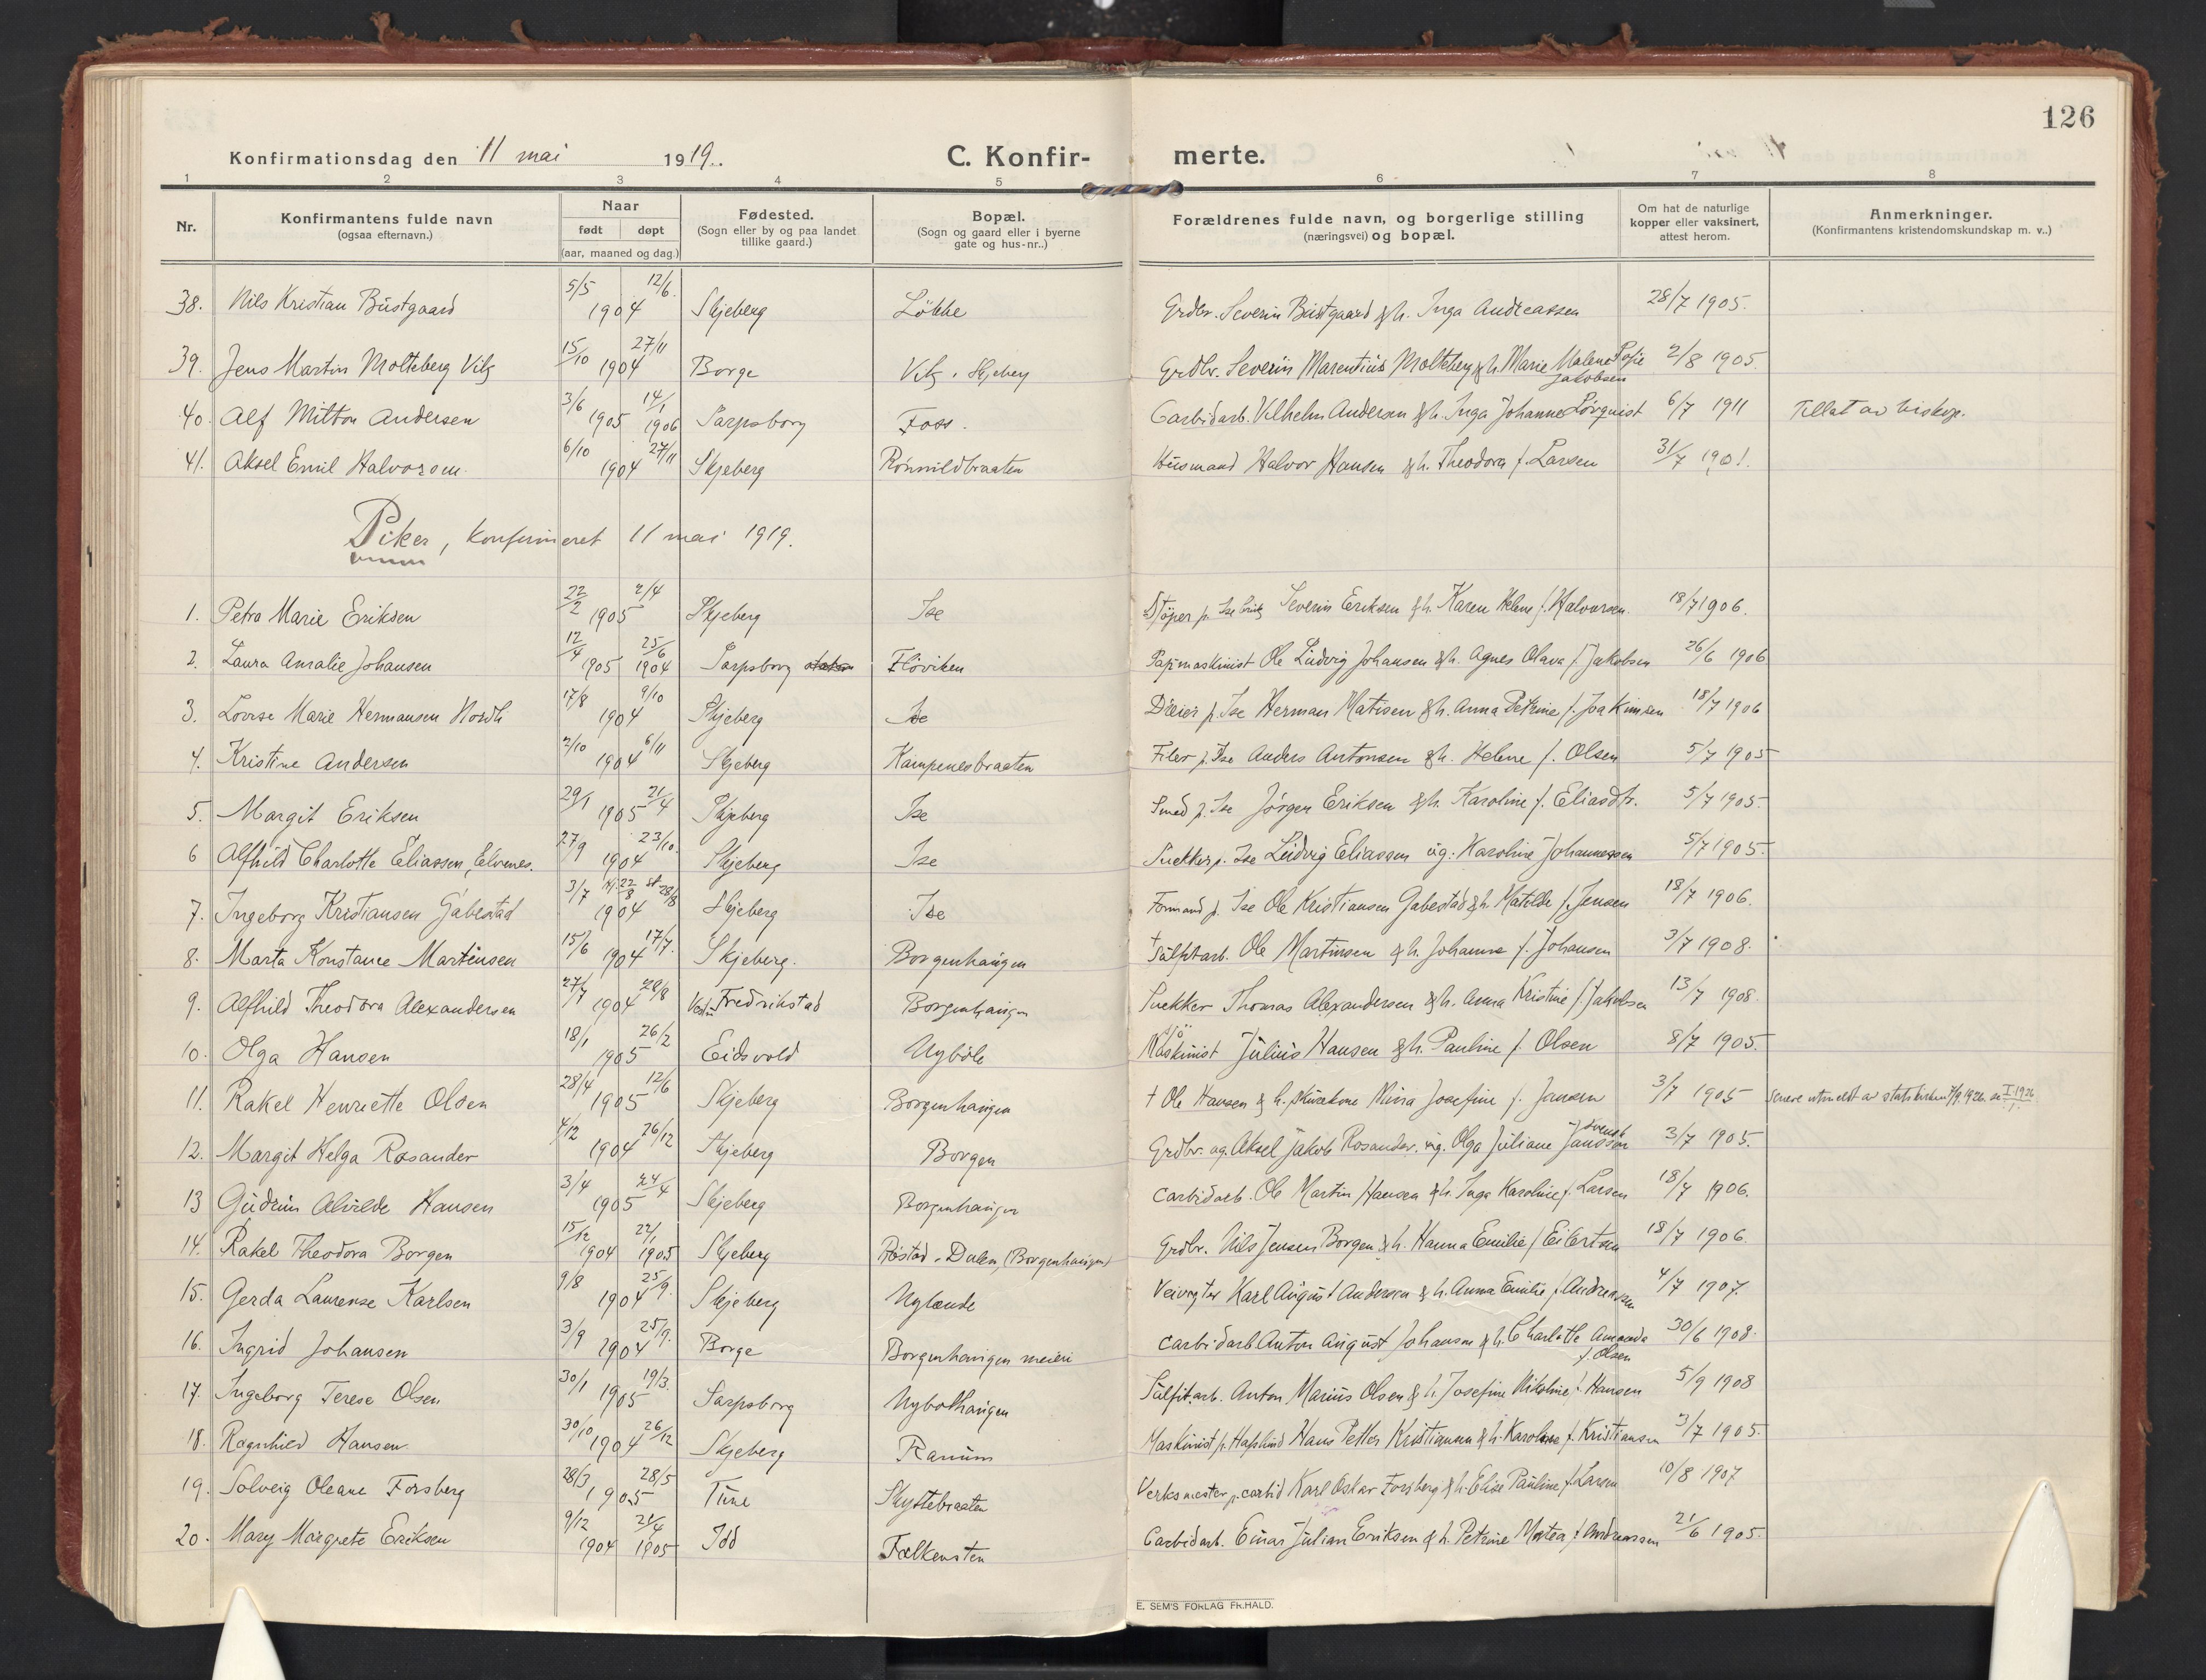 126
Konfirmationsdag den 11 mai 1919. C. Konfir- merte.
1 2 3 4 5 6 7 8
Nr. Konfirmantens fulde navn (ogsaa efternavn.) Naar født døpt (aar, maaned og dag.) Fødested. (Sogn eller by og paa landet tillike gaard.) Bopæl. (Sogn og gaard eller i byerne gate og hus-nr..) Forældrenes fulde navn, og borgerlige stilling (næringsvei) og bopæl. Om hat de naturlige kopper eller vaksinert, attest herom. Anmerkninger. (Konfirmantens kristendomskundskap m. v..)
38. Nils Kristian Bustgaard 5/5 12/6 1904 Skjeberg Løkke Grdbr. Severin Bustgaard & h. Inga Andreassen 28/7 1905.
39. Jens Martin Molteberg Vik 15/10 27/11 1904 Borge Vik, Skjeberg Grdbr. Severin Marentius Molteberg & h. Marie Malene Sofie Jakobsen 2/8 1905.
40. Alf Milton Andersen 3/6 1905 14/1 1906 Sarpsborg Foss. Carbidarb. Vilhelm Andersen & h. Inga Johanne Lövquist 6/7 1911 Tillat av biskop.
41. Aksel Emil Halvorsen 6/10 27/11 1904 Skjeberg Rönnildbraaten Husmand Halvor Hansen & h. Theodora f. Larsen 31/7 190!.
Piker, konfirmeret 11 mai 1919.
1. Petra Marie Eriksen 22/2 2/4 1905 Skjeberg Ise Støper p. Ise bruk Severin Eriksen & h. Karen Helene f. Halvorsen. 18/7 1906.
2. Laura Amalie Johansen 12/4 1905 25/6 1904 Sarpsborg Fløviken Papmaskinist Ole Ludvig Johansen & h. Agnes Olava f. Jakobsen 26/6 1906
3. Lovise Marie Hermansen Nordli 17/8 9/10 1904 Skjeberg Ise Dreier p. Ise Herman Matisen & h. Anna Petrine f. Joakimsen 18/7 1906
4. Kristine Andersen 2/10 6/11 1904 Skjeberg Kampenesbraaten Filer p. Ise Anders Antonsen & h. Helene f. Olsen 5/7 1905
5. Margit Eriksen 29/1 21/4 1905 Skjeberg Ise Smed p. Ise Jørgen Eriksen & h. Karoline f. Eliasdtr. 5/7 1905.
6 Alfhild Charlotte Eliassen, Elvenes. 27/9 23/10. 1904 Skjeberg Ise Snekker p. Ise Ludvig Eliassen ug: Karoline Johannessen 5/7 1905.
7. Ingeborg Kristiansen Gabestad 3/7 1904 Skjeberg Ise Formand p. Ise Ole Kristiansen Gabestad & h. Matilde f. Jensen 18/7 1906.
8. Marta Konstance Martinsen 15/6 17/7. 1904 Skjeberg. Borgenhaugen † Sulfitarb. Ole Martinsen & h. Johanne f. Johansen 3/7 1908.
9. Alfhild Theodora Alexandersen 27/7 28/8 1904 Vestre Fredrikstad Borgenhaugen Snekker Thomas Alexandersen & h. Anna Kristine f. Jakobsen 13/7 1908.
10. Olga Hansen 18/1 26/2 1905 Eidsvold Nyböle Maskinist Julius Hansen & h. Pauline f. Olsen 8/7 1905.
11. Rakel Henriette Olsen 28/4 12/6 1905 Skjeberg Borgenhaugen † Ole Hansen & h. Minna Josefine f. Jansen 3/7 1905 Senere utmeldt av statskirken 7/9 1926. se I 1926
12. Margit Helga Rosander 4/12 26/12 1904 Skjeberg Borgen Grdbr. ag. Aksel Jakob Rosander. ug. Olga Juliane Jansson svensk 3/7 1905.
13 Gudrun Alvilde Hansen 3/4 24/4 1905 Skjeberg Borgenhaugen Carbidarb. Ole Martin Hansen & h. Inga Karoline f. Larsen 18/7 1906.
14. Rakel Theodora Borgen 15/12 1904 22/1 1905 Skjeberg Röstad-Dalen, (Borgenhaugen) Grdbr. Nils Jensen Borgen & h. Hanna Emilie f Eilertsen 18/7 1906.
15. Gerda Laurense Karlsen 9/8 25/9. 1904 Skjeberg Nylænde Veivogter Karl August Andersen & h. Anna Emilie f. Andreassen 4/7 1907.
16. Ingrid Johansen 3/9 25/9. 1904 Borge Borgenhaugen meieri Carbidarb Anton August Johansen & h. Charlotte Amanda f. Olsen 30/6 1908.
17. Ingeborg Terese Olsen 30/1 19/3. 1905 Sarpsborg Nybølhaugen Sulfitarb. Anton Marius Olsen & h. Josefine Nikoline f. Hansen 5/9 1908
18. Ragnhild Hansen. 30/10 26/12 1904 Skjeberg Ranum Maskinist p. Hafslund Hans Petter Kristiansen & h. Karoline f. Kristiansen 3/7 1905.
19. Solveig Oleane Forsberg 28/3 28/5 1905 Tune Skyttebraaten Verksmester p. carbid Karl Oskar Forsberg & h. Elise Pauline f Larsen 10/8 1907
20. Mary Margrete Eriksen 9/12 1904 21/4 1905 Idd Falkensten Carbidarb. Einar Julian Eriksen & h. Petrine Matea f Andreassen 21/6 1905.
E. SEM'S FORLAG FR.HALD.